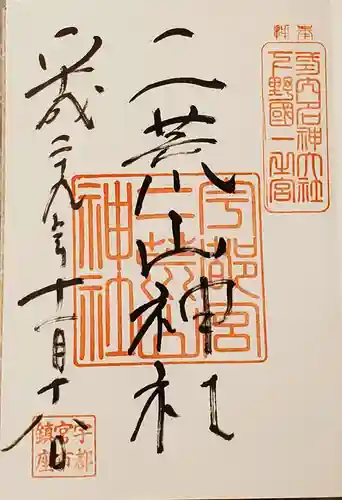 式内名神大社
下野國一之宮
二荒山神社
宇都宮
二荒山
神社
平成二九年十一月十八日
宇都
宮市
鎮座